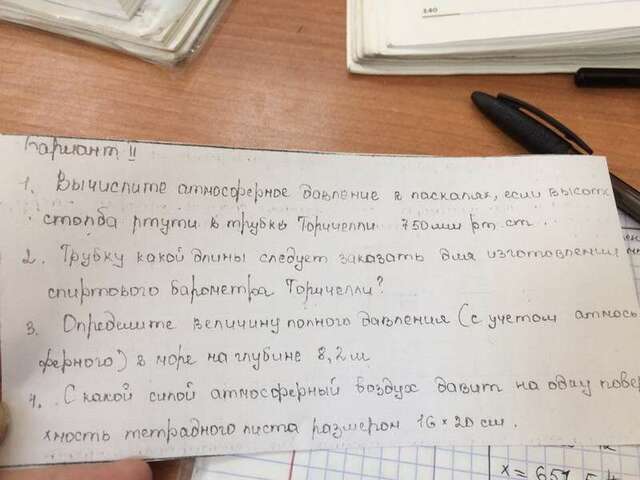 140
Вариант II
1. Вычислите атмосферное давление в паскалях, если высот
столба ртути в трубке Торичелли 750 мм рт. ст.
2. Трубку какой длины следует заказать для изготовления
спиртового барометра Торичелли?
3. Определите величину полного давления (с учетом атмос
ферного) в море на глубине 8,2 м
4. С какой силой атмосферный воздух давит на одну повер
хность тетрадного листа размером 16 × 20 см.
x = 651,5